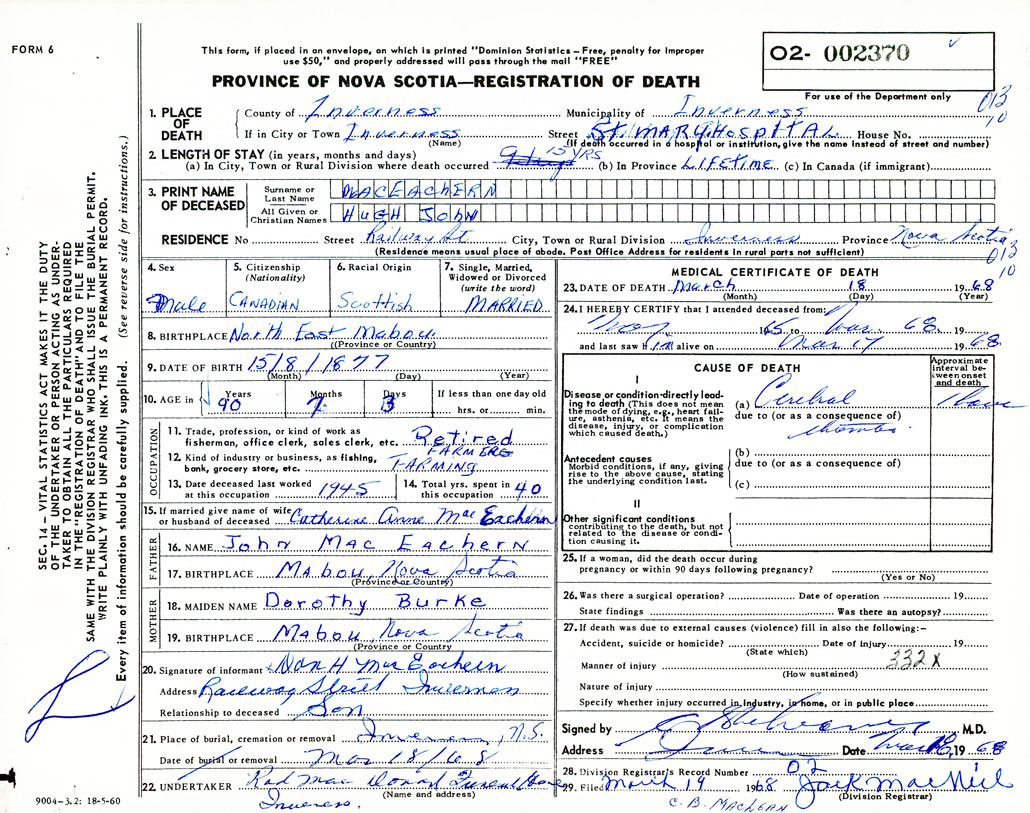 FORM 6
This form, if placed in an envelope, on which is printed "Dominion Statistics – Free, penalty for improper
use $50," and properly addressed will pass through the mail "FREE"
PROVINCE OF NOVA SCOTIA—REGISTRATION OF DEATH
02- 002370
For use of the Department only
013
10
1. PLACE OF DEATH
County of Inverness Municipality of Inverness
If in City or Town Inverness Street St. MARY HOSPITAL House No.
(Name) (If death occurred in a hospital or institution, give the name instead of street and number)
2. LENGTH OF STAY (in years, months and days)
(a) In City, Town or Rural Division where death occurred 15 YRS (b) In Province LIFETIME (c) In Canada (if immigrant)
3. PRINT NAME OF DECEASED
Surname or Last Name MACEACHERN
All Given or Christian Names HUGH JOHN
RESIDENCE No Street Railway St City, Town or Rural Division Inverness Province Nova Scotia
(Residence means usual place of abode. Post Office Address for residents in rural parts not sufficient)
013
10
4. Sex Male
5. Citizenship (Nationality) CANADIAN
6. Racial Origin Scottish
7. Single, Married, Widowed or Divorced (write the word) MARRIED
8. BIRTHPLACE North East Mabou
(Province or Country)
9. DATE OF BIRTH 15/8/1877
(Month) (Day) (Year)
10. AGE in Years 90 Months 7 Days 3 If less than one day old
hrs. or min.
OCCUPATION
11. Trade, profession, or kind of work as fisherman, office clerk, sales clerk, etc. Retired FARMER
12. Kind of industry or business, as fishing, bank, grocery store, etc. FARMING
13. Date deceased last worked at this occupation 1945
14. Total yrs. spent in this occupation 40
15. If married give name of wife or husband of deceased Catherine Anne Mac Eachern
FATHER
16. NAME John Mac Eachern
17. BIRTHPLACE Mabou, Nova Scotia
(Province or Country)
MOTHER
18. MAIDEN NAME Dorothy Burke
19. BIRTHPLACE Mabou, Nova Scotia
(Province or Country)
20. Signature of informant Dan H MacEachern
Address Railway Street Inverness
Relationship to deceased Son
21. Place of burial, cremation or removal Inverness, N.S.
Date of burial or removal Mar 18/68
22. UNDERTAKER Rod Mac Donald Funeral Home
(Name and address)
Inverness.
9004-3.2: 18-5-60
MEDICAL CERTIFICATE OF DEATH
23. DATE OF DEATH March 18 1968
(Month) (Day) (Year)
24. I HEREBY CERTIFY that I attended deceased from:
to Mar. 68. 19
and last saw him alive on Mar 17 1968
CAUSE OF DEATH
Approximate interval between onset and death
I
Disease or condition directly leading to death (This does not mean the mode of dying, e.g., heart failure, asthenia, etc. It means the disease, injury, or complication which caused death.)
(a) Cerebral
due to (or as a consequence of)
Antecedent causes
Morbid conditions, if any, giving rise to the above cause, stating the underlying condition last.
(b)
due to (or as a consequence of)
(c)
II
Other significant conditions
contributing to the death, but not related to the disease or condition causing it.
25. If a woman, did the death occur during
pregnancy or within 90 days following pregnancy?
(Yes or No)
26. Was there a surgical operation? Date of operation 19
State findings Was there an autopsy?
27. If death was due to external causes (violence) fill in also the following:–
Accident, suicide or homicide? Date of injury 19
(State which)
Manner of injury 332X
(How sustained)
Nature of injury
Specify whether injury occurred in industry, in home, or in public place
Signed by M.D.
Address Date 1968
28. Division Registrar's Record Number 02
29. Filed March 19 1968 Jack MacNeil
(Division Registrar)
C. B. MACLEAN
SEC. 14 – VITAL STATISTICS ACT MAKES IT THE DUTY
OF THE UNDERTAKER OR PERSON ACTING AS UNDER-
TAKER TO OBTAIN ALL THE PARTICULARS REQUIRED
IN THE "REGISTRATION OF DEATH" AND TO FILE THE
SAME WITH THE DIVISION REGISTRAR WHO SHALL ISSUE THE BURIAL PERMIT.
WRITE PLAINLY WITH UNFADING INK. THIS IS A PERMANENT RECORD.
Every item of information should be carefully supplied. (See reverse side for instructions.)